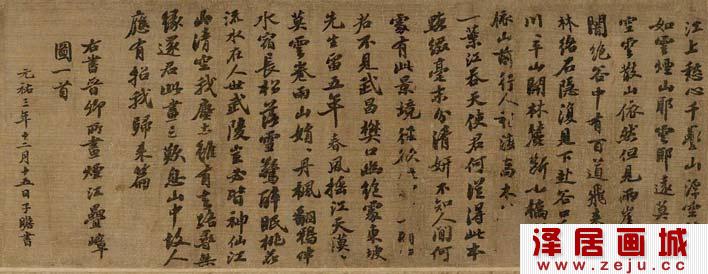 江上愁心千疊山浮空
如雲煙山耶雲耶遠莫
空雲散山依然但見兩崖
闇絕谷中有百道飛来
林絡石隱復見下赴谷口
川平山開林麓斷小橋
依山前行人稍渡喬木
一葉江吞天使君何從得此本
點綴毫末分清妍不知人間何
處有此境徑欲
君不見武昌樊口幽絕處東坡
先生留五年春風搖江天漠〻
莫雲卷雨山娟〻丹楓翻鴉伴
水宿長松落雪驚醉眠桃花
流水在人世武陵豈必皆神仙江
山清空我塵土雖有去路尋無
緣還君此畫三歎息山中故人
應有招我歸来篇
右書晉卿所畫煙江疊嶂
圖一首
元祐三年十二月十五日子瞻書
泽居画城
www.zeju.com